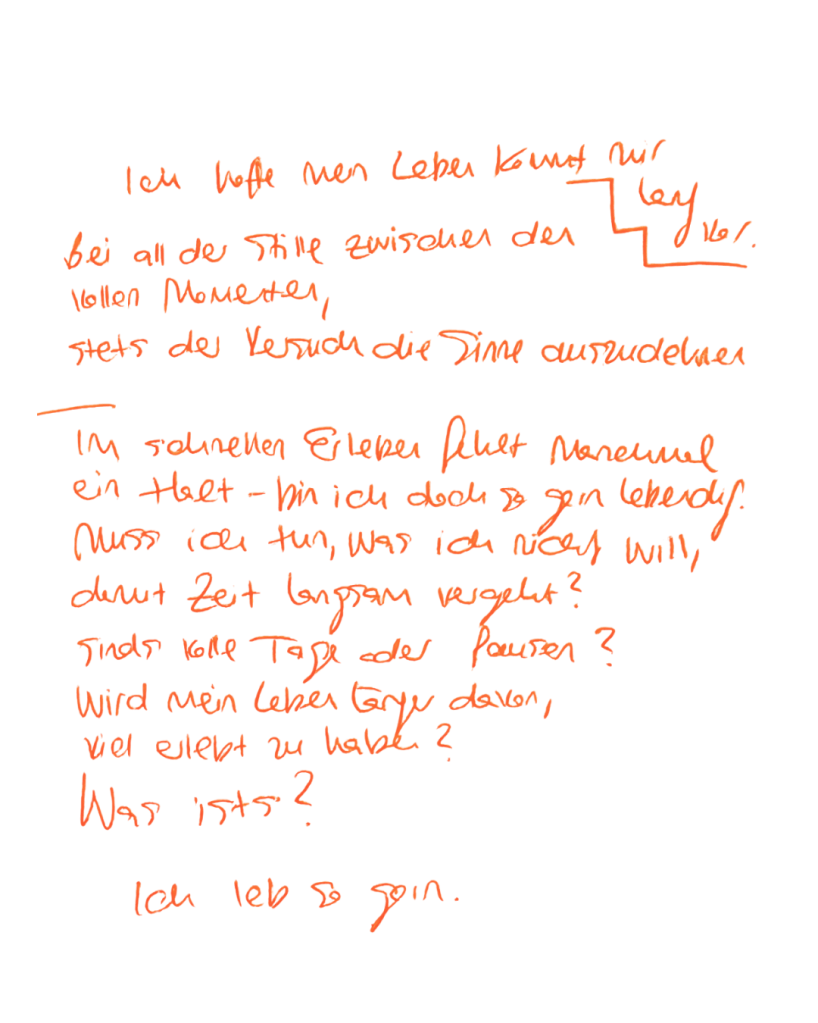 Ich hoffe mein Leben kommt mir
lang
vor.
bei all der Stille zwischen den
vollen Momenten,
stets der Versuch die Sinne auszudehnen
Im schnellen Erleben fehlt manchmal
ein Halt – bin ich doch so gern lebendig.
Muss ich tun, was ich nicht will,
damit Zeit langsam vergeht?
Sinds volle Tage oder Pausen?
Wird mein Leben länger davon,
viel erlebt zu haben?
Was ists?
Ich leb so gern.